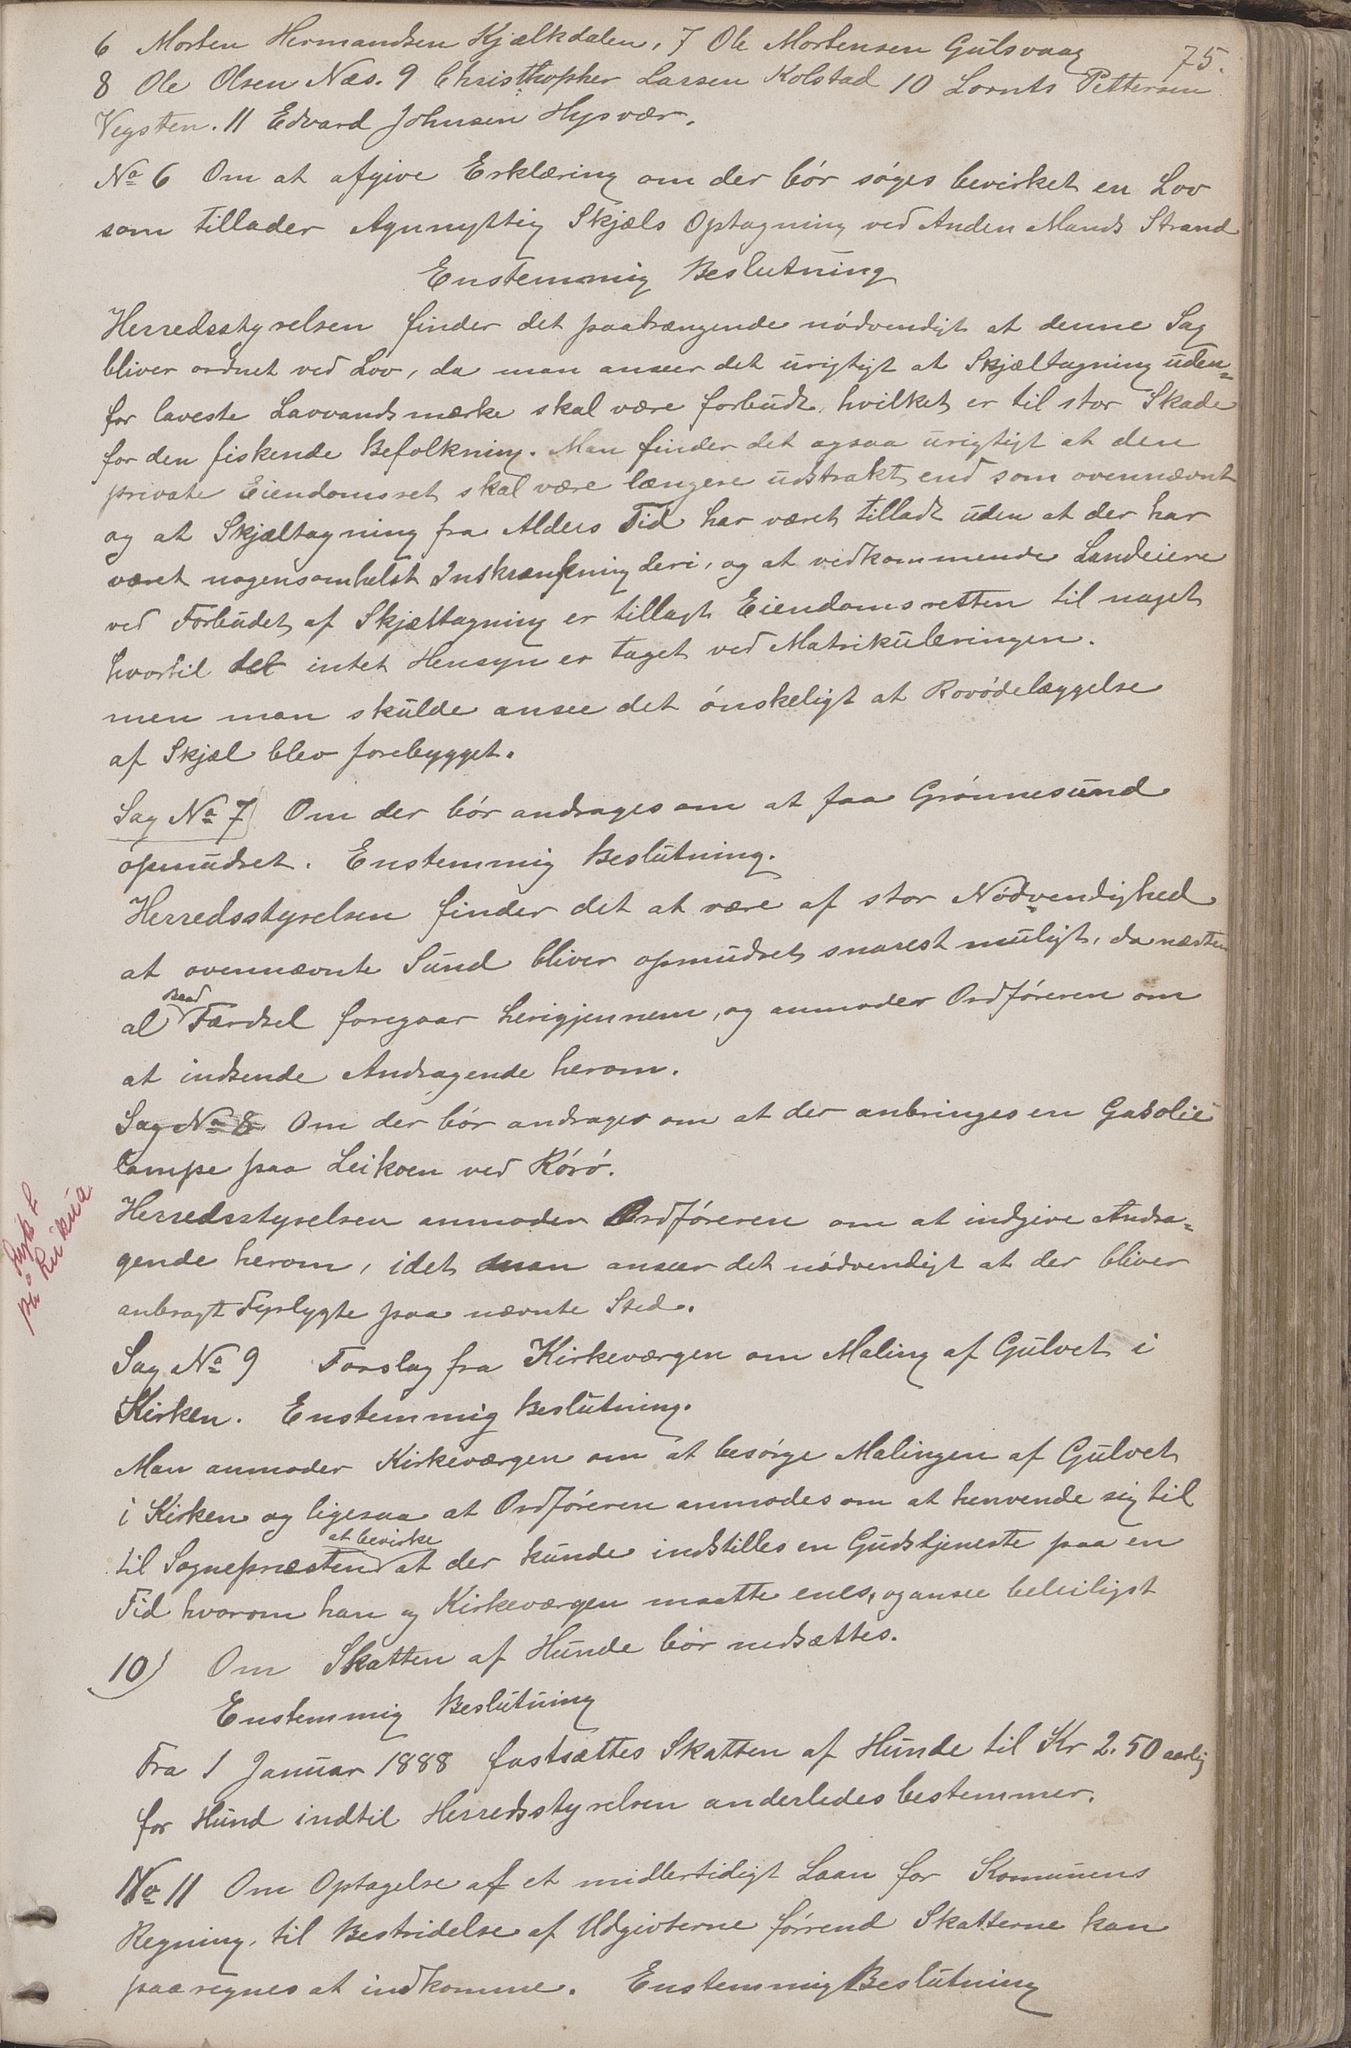 75.
6 Morten Hermandsen Kjælkdalen, 7 Ole Mortensen Gulsvaag
8 Ole Olsen Næs. 9 Christhopher Larsen Kolstad 10 Lornts Pettersen
Vegsten. 11 Edvard Johnsen Hysvær.
No 6 Om at afgive Erklæring om der bör söges bevirket en Lov
som tillader Agnnyttig Skjæls Optagning ved Anden Mands Strand
Enstemmig Beslutning
Herredsstyrelsen finder det paatrængende nödvendigt at denne Sag
bliver ordnet ved Lov, da man anseer det urigtigt at Skjæltagning uden-
for laveste Lavvandsmærke skal være forbudt, hvilket er til stor Skade
for den fiskende Befolkning. Man finder det ogsaa urigtigt at den
private Eiendomsret skal være længere udstrakt end som ovennævnt
og at Skjæltagning fra Alders Tid har været tilladt uden at der har
været nogensomhelst Inskrænkning deri, og at vedkommende Landeiere
ved Forbudet af Skjæltagning er tillagt Eiendomsretten til noget
hvortil det intet Hensyn er taget ved Matrikuleringen.
men man skulde ansee det önskeligt at Rovödelæggelse
af Skjæl blev forebygget.
Sag No 7 Om der bör andrages om at faa Grönnesund
opmudret. Enstemmig Beslutning.
Herredsstyrelsen finder det at være af stor Nödvendighed
at ovennævnte Sund bliver opmudret snarest muligt, da næsten
al Baad Færdsel foregaar herigjennem, og anmoder Ordföreren om
at indsende Andragende herom.
Sag No 8 Om der bör andrages om at der anbringes en Gasolie
lampe paa Leikoen ved Rörö.
Herredsstyrelsen anmoder Ordföreren om at indgive Andra-
gende herom, idet man anseer det nödvendigt at der bliver
anbragt Fyrlygte paa nævnte Sted.
på Leikua
Sag No 9 Forslag fra Kirkeværgen om Maling af Gulvet i
Kirken. Enstemmig Beslutning.
Man anmoder Kirkeværgen om at besörge Malingen af Gulvet
i Kirken og ligesaa at Ordföreren anmodes om at henvende sig til
til Sognepræsten at bevirke at der kunde indstilles en Gudstjeneste paa en
Tid hvorom han og Kirkeværgen maatte enes, og ansee beleiligst
10) Om Skatten af Hunde bör nedsættes.
Enstemmig Beslutning
Fra 1 Januar 1888 fastsættes Skatten af Hunde til Kr 2.50 aarlig
for Hund indtil Herredsstyrelsen anderledes bestemmer.
No 11 Om Optagelse af et midlertidigt Laan for Komunens
Regning, til Bestridelse af Udgivterne förend Skatterne kan
paaregnes at indkomme. Enstemmig Beslutning